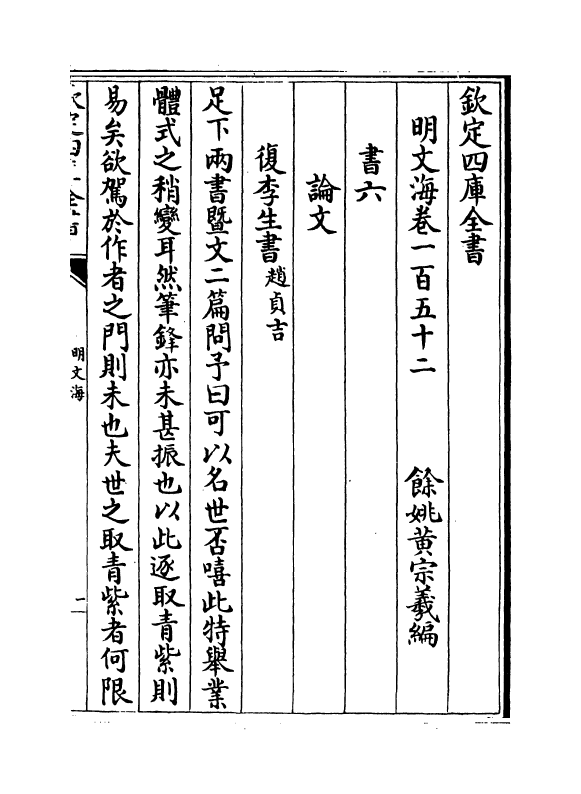 欽定四庫全書
明文海卷一百五十二
餘姚黄宗羲編
書六
論文
復李生書 趙貞吉
足下兩書暨文二篇問予曰可以名世否嘻此特舉業
體式之稍變耳然筆鋒亦未甚振也以此逐取青紫則
易矣欲駕於作者之門則未也夫世之取青紫者何限
明文海